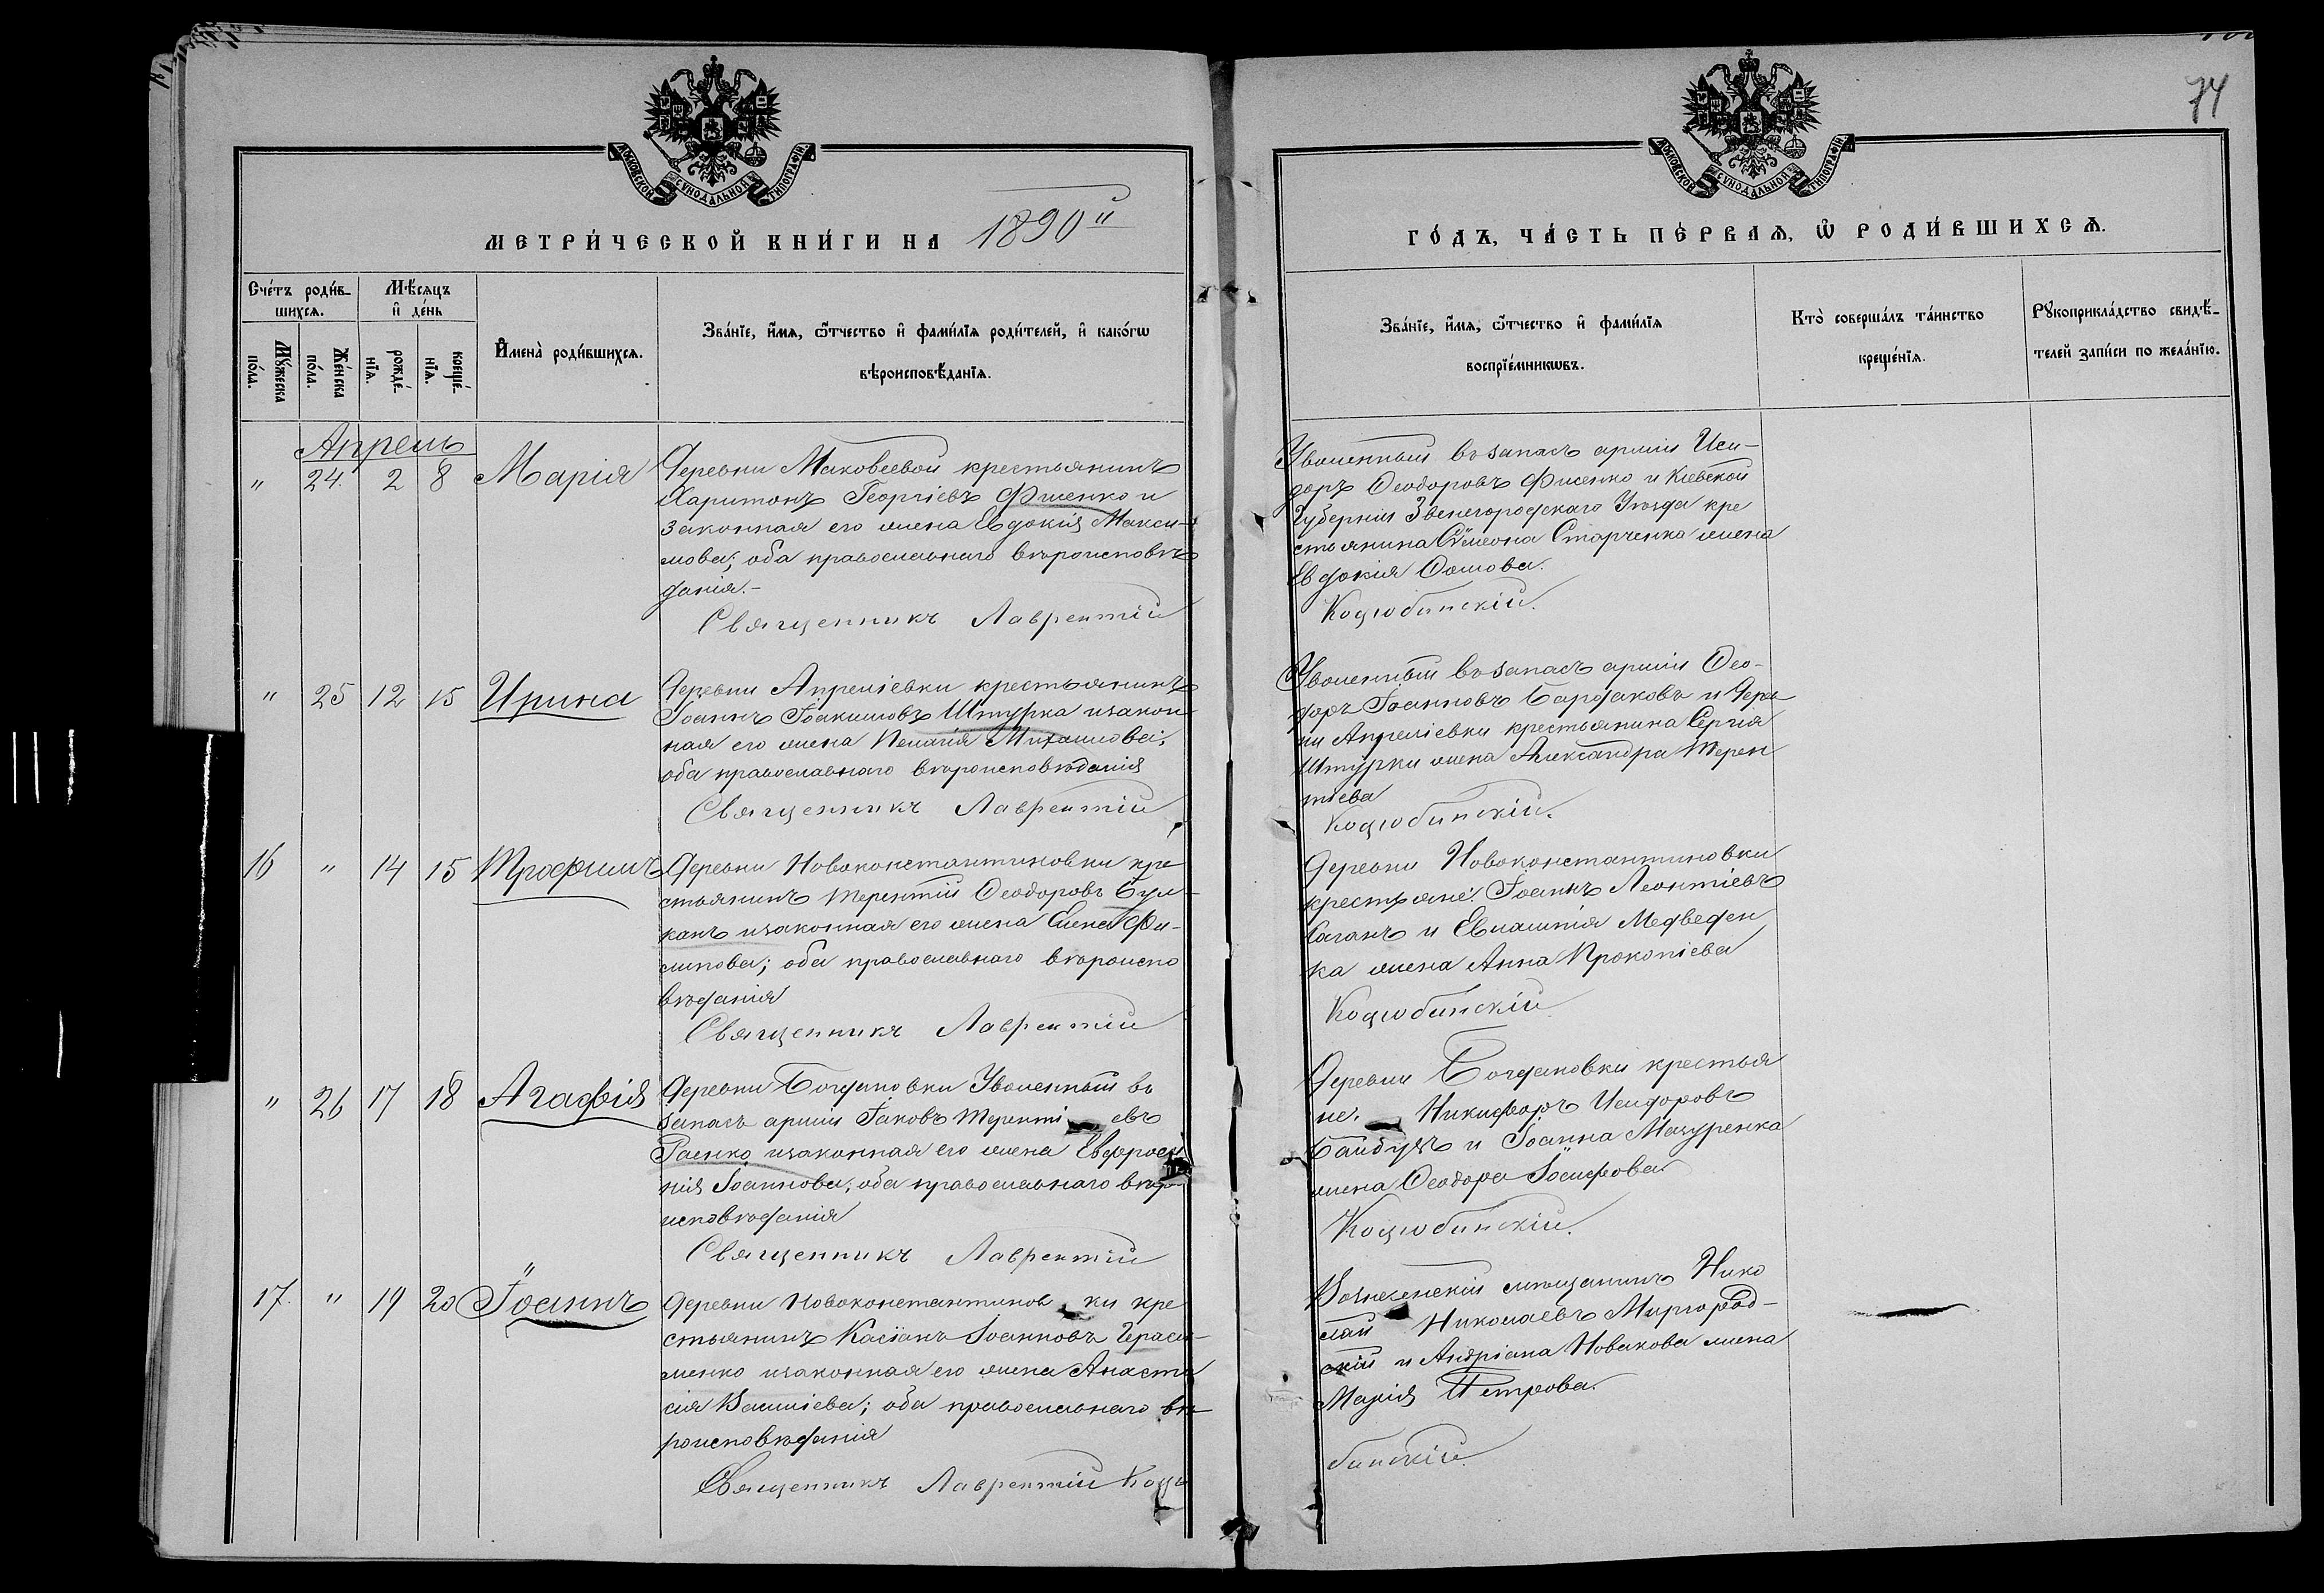 74
МОСКОВСКОЙ СУНОДАЛЬНОЙ ТИПОГРАФІИ.
МОСКОВСКОЙ СУНОДАЛЬНОЙ ТИПОГРАФІИ.
МЕТРИ́ЧЕСКОЙ КНИ́ГИ НА 1890й
ГО́ДЪ, ЧА́СТЬ ПЕ́РВАѦ, Ѽ РОДИ́ВШИХСѦ.
Сче́тъ роди́в-
шихсѧ.
Мѣ́сѧцъ
и҆ де́нь
Мꙋ́жеска
по́ла.
Же́нска
по́ла.
рожде́-
нїѧ.
креще́-
нїѧ.
И҆мена̀ роди́вшихсѧ.
Зва́нїе, и҆́мѧ, ѻ҆́тчество и҆ фами́лїѧ роди́телей, и҆ како́гѡ
вѣроисповѣ́данїѧ.
Зва́нїе, и҆́мѧ, ѻ҆́тчество и҆ фами́лїѧ
воспрїе́мникѡвъ.
Кто̀ соверша́лъ та́инство
креще́нїѧ.
Рꙋкоприкла́дство свидѣ́-
телей за́писи по жела́нїю.
Апрель
" 24. 2 8 Марія
Деревни Маковеевой крестьянинъ
Харитонъ Георгіевъ Фисенко и
законная его жена Евдокія Макси-
мова; оба православнаго вѣроисповѣ
данія.-
Священникъ Лаврентій
Уволенный въ запасъ арміи Иси-
доръ Ѳеодоровъ Фисенко и Кіевской
Губерніи Звенегородскаго Уѣзда кре
стьянина Сѵмеона Старченка жена
Евдокія Ѳомова.
Коцюбинскій.
" 25 12 15 Ирина
Деревни Апреліевки крестьянинъ
Іоаннъ Іоакимовъ Штурка и закон
ная его жена Пелагія Михаилова;
оба православнаго вѣроисповѣданія
Священникъ Лаврентій
Уволенный въ запасъ арміи Ѳео-
доръ Іоанновъ Бардаковъ и Дерев
ни Апреліевки крестьянина Сергія
Штурки жена Александра Терен
тіева
Коцюбинскій.
16 " 14 15 Трофимъ
Деревни Новоконстантиновки кре
стьянинъ Терентій Ѳеодоровъ Бул-
канъ и законная его жена Елена Фи-
липова; оба православнаго вѣроиспо
вѣданія
Священникъ Лаврентій
Деревни Новоконстантиновки
крестьяне: Іоаннъ Леонтіевъ
Саганъ и Евлампія Медведен
ка жена Анна Прокопіева
Коцюбинскій
" 26 17 18 Агафія
Деревни Богдановки Уволенный въ
запасъ арміи Іаковъ Терентіевъ
Раенко и законная его жена Евфроси
нія Іоаннова; оба православнаго вѣро
исповѣданія
Священникъ Лаврентій
Деревни Богдановки крестья
не: Никифоръ Исидоровъ
Байбузъ и Іоанна Мазуренка
жена Ѳеодора Іосифова.
Коцюбинскій.
17. " 19 20 Іоаннъ
Деревни Новоконстантиновки кре
стьянинъ Касіанъ Іоанновъ Гераси-
менко и законная его жена Анаста
сія Василіева; оба православнаго вѣ-
роисповѣданія
Священникъ Лаврентій Коцю
Вознесенскій мѣщанинъ Нико
лай Николаевъ Миргород-
скій и Андріана Новакова жена
Марія Петрова.
бинскій.